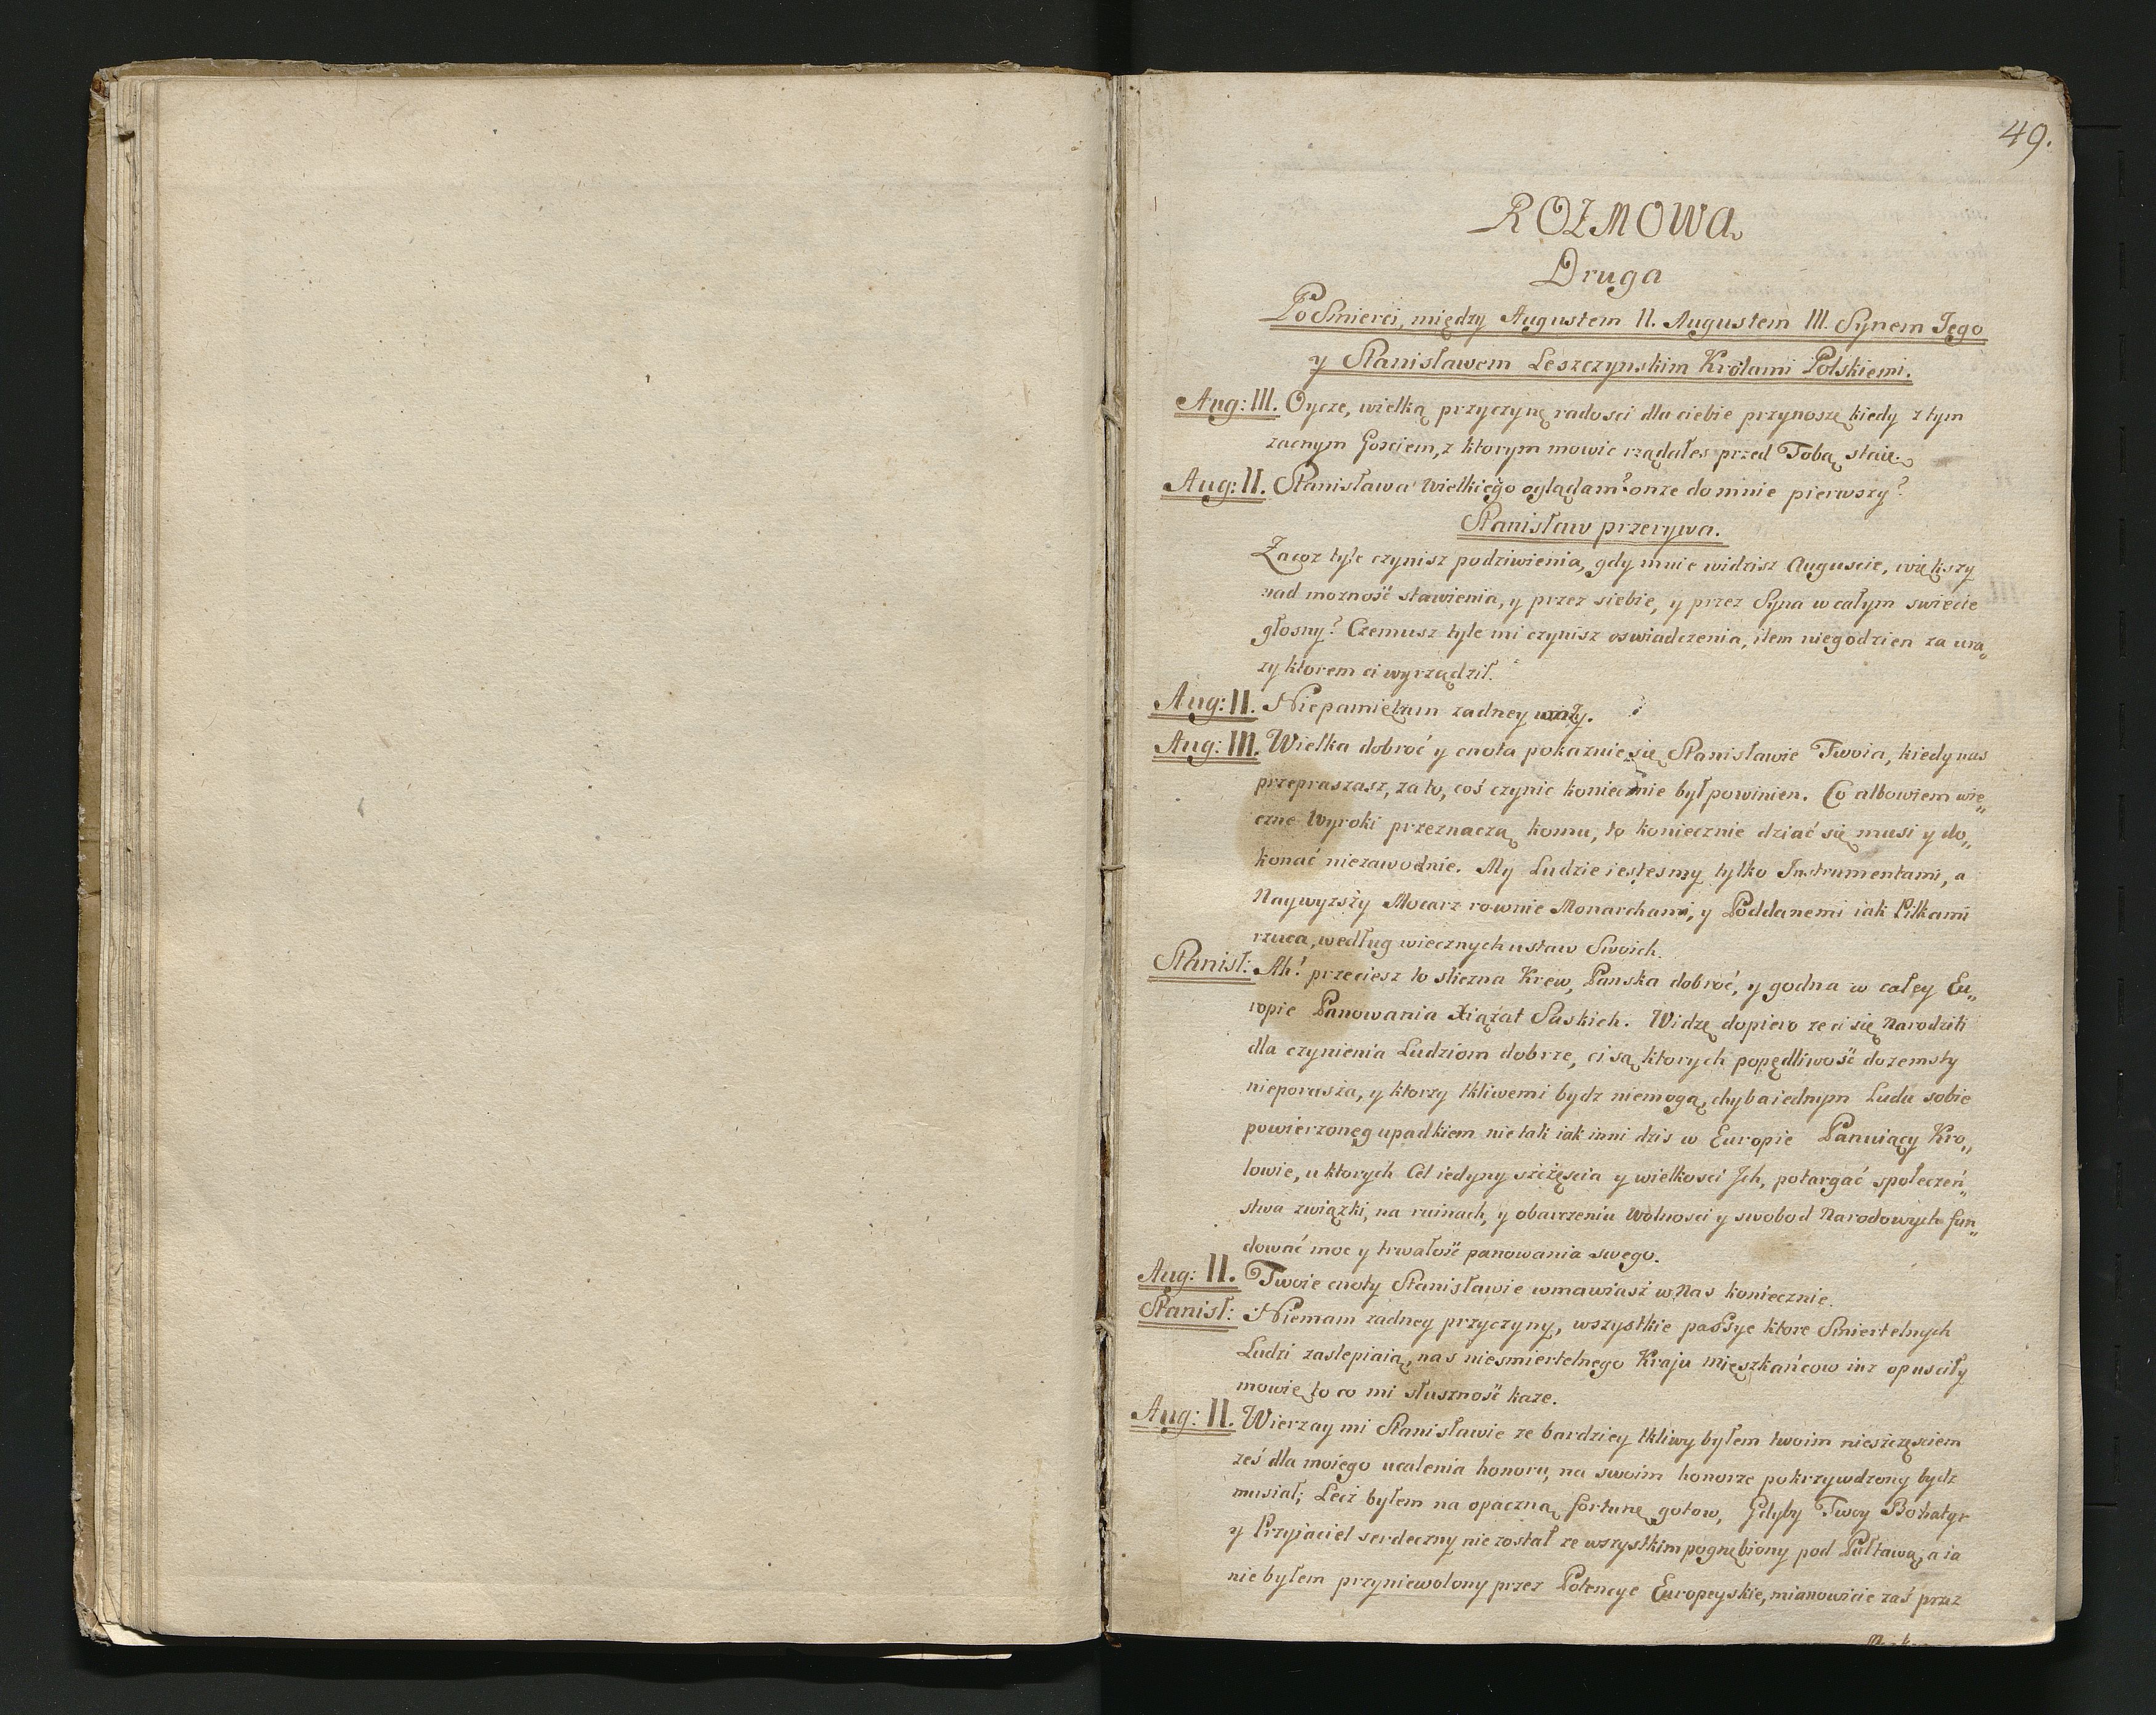 49.
ROZMOWA
Druga
Po Smierci, między Augustem II. Augustem III. Synem Jego
y Stanisławem Leszczynskim Królami Polskiemi.
Aug: III. Oycze, wielką przyczynę radosci dla ciebie przynoszę kiedy z tym
zacnym Gosciem, z ktorym mowic rządałes przed Tobą staię.
Aug: II. Stanisława Wielkiego oglądam? onze do mnie pierwszy?
Stanisław przerywa.
Zacoz tyle czynisz podziwienia, gdy mnie widzisz Auguscie, większy
nad mozność sławienia, y przez siebie, y przez Syna w całym swiecie
głosny? Czemusz tyle mi czynisz oswiadczenia, ilem niegodzien za ura„
zy ktorem ci wyrządził.
Aug: II. Niepamiętam zadney urazy.
Aug: III. Wielka dobroć y cnota pokaznie się Stanisławie Twoia, kiedy nas
przepraszasz, za to, coś czynic koniecznie był powinien. Co albowiem wie„
czne Wyroki przeznaczą komu, to koniecznie dziać się musi y do„
konać niezawodnie. My Ludzie iestesmy tylko Instrumentami, a
Naywyzszy Mocarz rownie Monarchami, y Poddanemi iak Piłkami
rzuca, według wiecznych ustaw Swoich.
Stanisł: Ah! przeciesz to sliczna Krew, Panska dobroć, y godna w całey Eu„
ropie Panowania Xiążat Saskich. Widzę dopiero ze ci się Narodzili
dla czynienia Ludziom dobrze, ci są ktorych popędliwość do zemsty
nieporusza, y ktorzy tkliwemi bydz niemogą, chyba iednym Ludu sobie
powierzoneg upadkiem nie tak iak inni dzis w Europie Panuiący Kro„
lowie, u ktorych Cel iedyny szczęscia y wielkosci Jch, potargać społeczeń„
stwa związki, na ruinach, y obarczeniu Wolnosci y swobod Narodowych fun„
dować moc y trwałość panowania swego.
Aug: II. Twoie cnoty Stanisławie wmawiasz w Nas koniecznie.
Stanisł: Niemam zadney przyczyny, wszystkie passye ktore Smiertelnych
Ludzi zaslepiaią, nas niesmiertelnego Kraju mięszkańcow iuz opusciły
mowię to co mi słuszność kaze.
Aug: II. Wierzay mi Stanisławie ze bardziey tkliwy byłem twoim nieszczęsciem
ześ dla moiego ucalenia honoru, na swoim honorze pokrzywdzony bydz
musiał; Lecz byłem na opaczną fortunę gotow, Gdyby Twoy Bohatyr
y Przyjaciel serdeczny nie został ze wszystkim pognębiony pod Pułtawą, a ia
nie byłem przyniewolony przez Potencye Europeyskie, mianowicie zaś przez